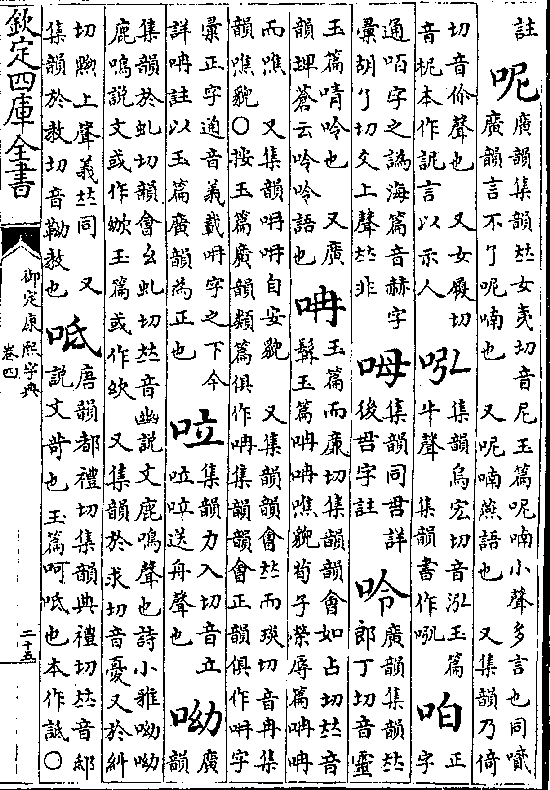 註
呢
廣韻集韻𠀤女夷切音尼玉篇呢喃小聲多言也同
廣韻言不了呢喃也 又呢喃燕語也 又集韻乃倚
切音伱聲也 又女履切
音柅本作䛏言以示人
集韻烏宏切音泓玉篇
牛聲 集韻書作
咟
正
字
通咟字之譌海篇音赫字
彙胡了切爻上聲𠀤非
呣
集韻同 詳
後 字註
呤
廣韻集韻𠀤
郎丁切音靈
玉篇啨呤也 又廣
韻埤蒼云呤呤語也
呥
玉篇而廉切集韻韻會如占切𠀤音
髥玉篇呥呥噍貌荀子榮辱篇呥呥
而噍 又集韻呥呥自安貌 又集韻韻會𠀤而琰切音冉集
韻噍貌○按玉篇廣韻類篇俱作呥集韻韻會正韻俱作 字
彙正字通音義載 字之下今
詳呥註以玉篇廣韻為正也
集韻力入切音立
送舟聲也
呦
廣
韻
集韻於虬切韻會幺虬切𠀤音幽說文鹿鳴聲也詩小雅呦呦
鹿鳴說文或作㕭玉篇或作欬 又集韻於求切音憂又於糾
切黝上聲義𠀤同 又
集韻於教切音靿教也
呧
唐韻都禮切集韻典禮切𠀤音邸
說文苛也 玉篇呵呧也本作詆○
欽定四庫全書
御定康熙字典
卷四
二十五